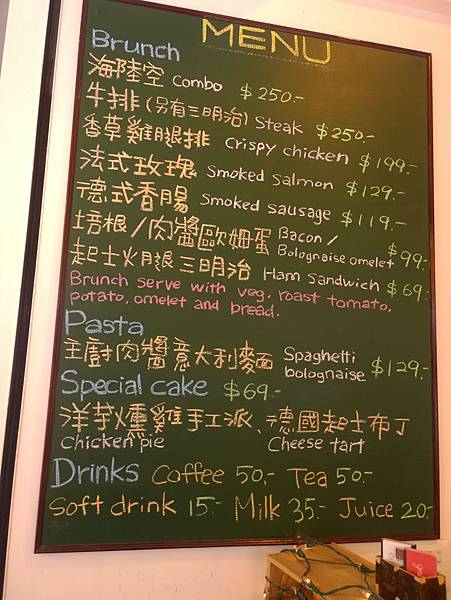 MENU
Brunch
海陸空 Combo $250.-
牛排(另有三明治) Steak $250.-
香草雞腿排 Crispy chicken $199.-
法式玫瑰 Smoked Salmon $129.-
德式香腸 Smoked sausage $119.-
培根/肉醬歐姆蛋 Bacon / Bolognaise omelet $99.-
起士火腿三明治 Ham Sandwich $69.-
Brunch serve with veg. roast tomato,
potato, omelet and bread.
Pasta
主廚肉醬意大利麵 Spaghetti bolognaise $129.-
Special cake $69.-
洋芋燻雞手工派、德國起士布丁
chicken pie Cheese tart
Drinks Coffee 50.- Tea 50.-
Soft drink 15.- Milk 35.- Juice 20.-